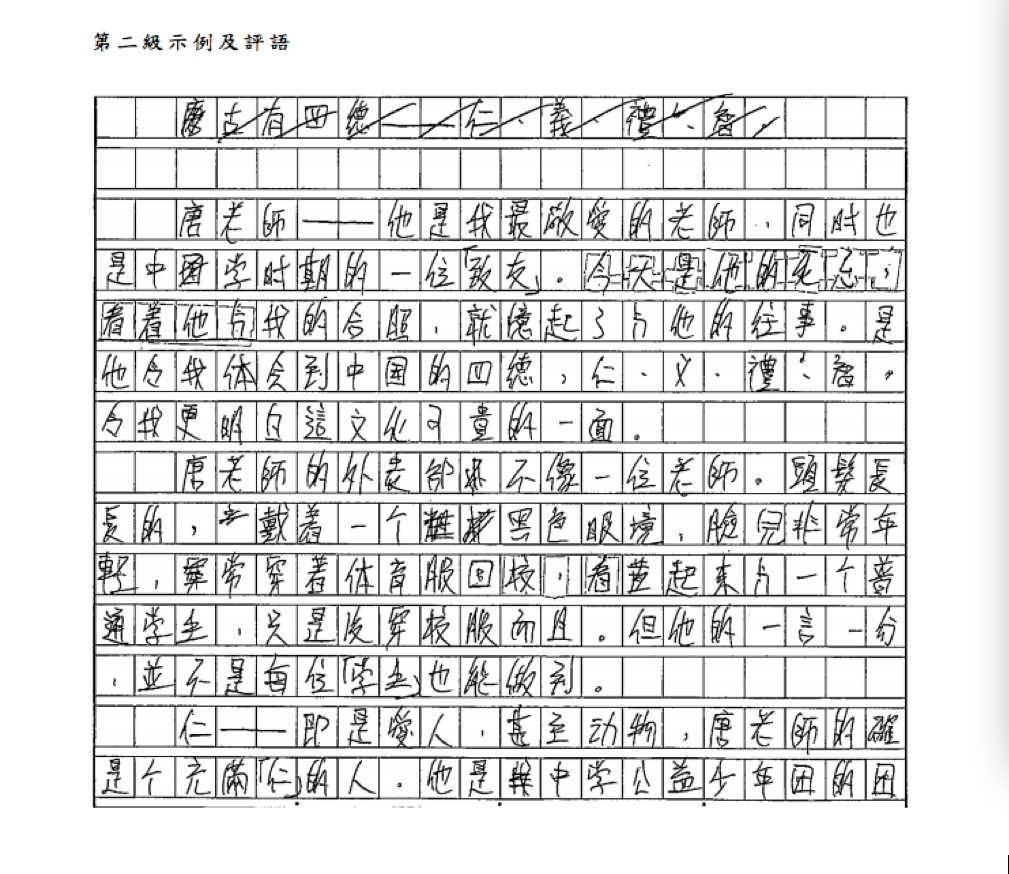 第二級示例及評語
唐古有四德——仁、義、禮、智。
唐老師——他是我最敬愛的老師，同时也
是中国学时期的一位「致友」。今天是他的死忌，
看着他与我的合照，就憶起了与他的往事。是
他令我体会到中国的四德，仁、义、禮、智。
令我更明白這文化可貴的一面。
唐老師的外表却不像一位老師。頭髮長
長的，戴着一个黑色眼境，臉兒非常年
輕，穿着体育服回校，看起来与一个普
通学生，只是没穿校服而且。但他的一言一分
，並不是每位「学生」也能做到。
仁——即是愛人，甚至动物，唐老師的確
是个充滿「仁」的人。他是中学公益少年团的团